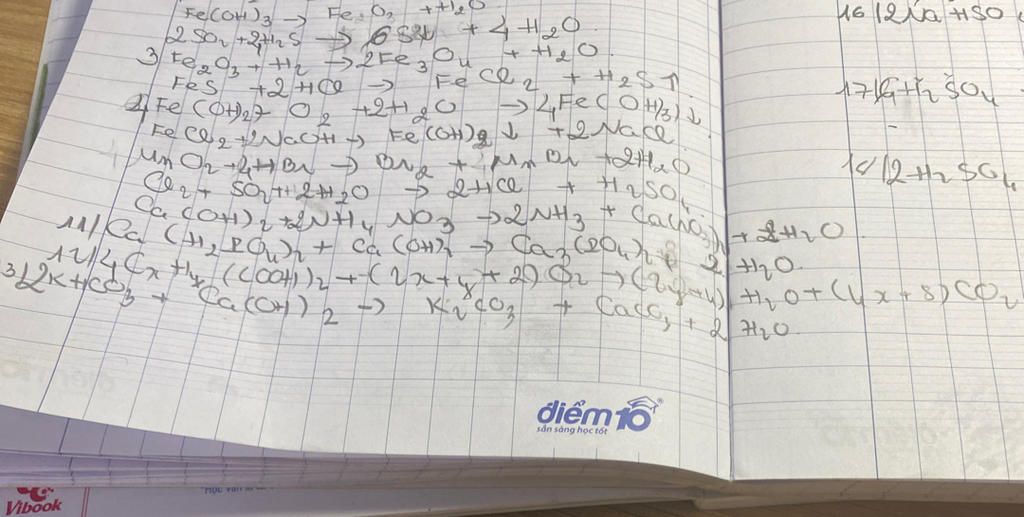 Fe(OH)3 → Fe2O3 + H2O
2SO2 + 4H2S → 6S↓ + 4H2O
3Fe2O3 + H2 → 2Fe3O4 + H2O
FeS + 2HCl → FeCl2 + H2S↑
4Fe(OH)2 + O2 + 2H2O → 4Fe(OH)3↓
FeCl2 + 2NaOH → Fe(OH)2↓ + 2NaCl
MnO2 + 4HBr → Br2 + MnBr + 2H2O
Cl2 + SO2 + 2H2O → 2HCl + H2SO4
Ca(OH)2 + 2NH4NO3 → 2NH3 + Ca(NO3)2 + 2H2O
11/ Ca(H2PO4)2 + Ca(OH)2 → Ca3(PO4)2 + 2H2O
12/ 4CxHy(COOH)2 + (4x+y+2)O2 → H2O + (4x+8)CO2
3) 2KHCO3 + Ca(OH)2 → K2CO3 + CaCO3 + 2H2O
16/ 2Na + SO
17/ H2SO4
2H2SO4
điểm10
sẵn sàng học tốt
Vibook